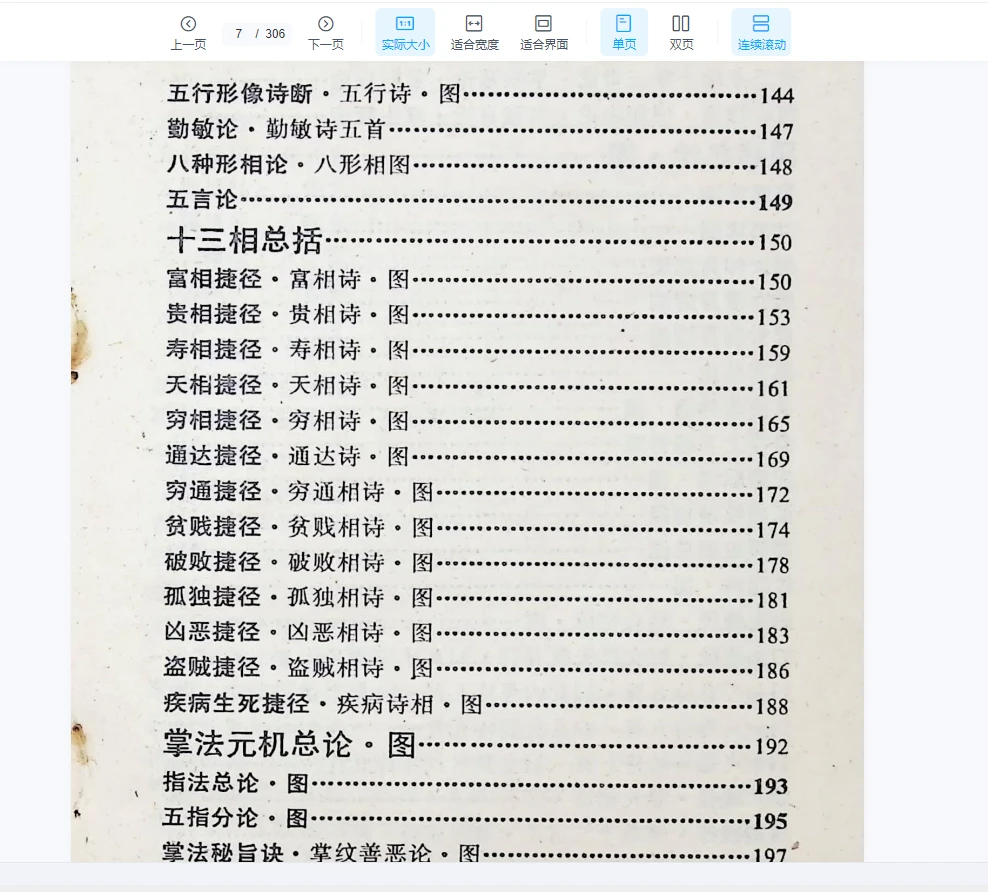 上一页 7 / 306 下一页 1:1 实际大小 适合宽度 适合界面 单页 双页 连续滚动
五行形像诗断·五行诗·图……144
勤敏论·勤敏诗五首……147
八种形相论·八形相图……148
五言论……149
十三相总括……150
富相捷径·富相诗·图……150
贵相捷径·贵相诗·图……153
寿相捷径·寿相诗·图……159
夭相捷径·夭相诗·图……161
穷相捷径·穷相诗·图……165
通达捷径·通达诗·图……169
穷通捷径·穷通相诗·图……172
贫贱捷径·贫贱相诗·图……174
破败捷径·破败相诗·图……178
孤独捷径·孤独相诗·图……181
凶恶捷径·凶恶相诗·图……183
盗贼捷径·盗贼相诗·图……186
疾病生死捷径·疾病诗相·图……188
掌法元机总论·图……192
指法总论·图……193
五指分论·图……195
掌法秘旨诀·掌纹善恶论·图……197